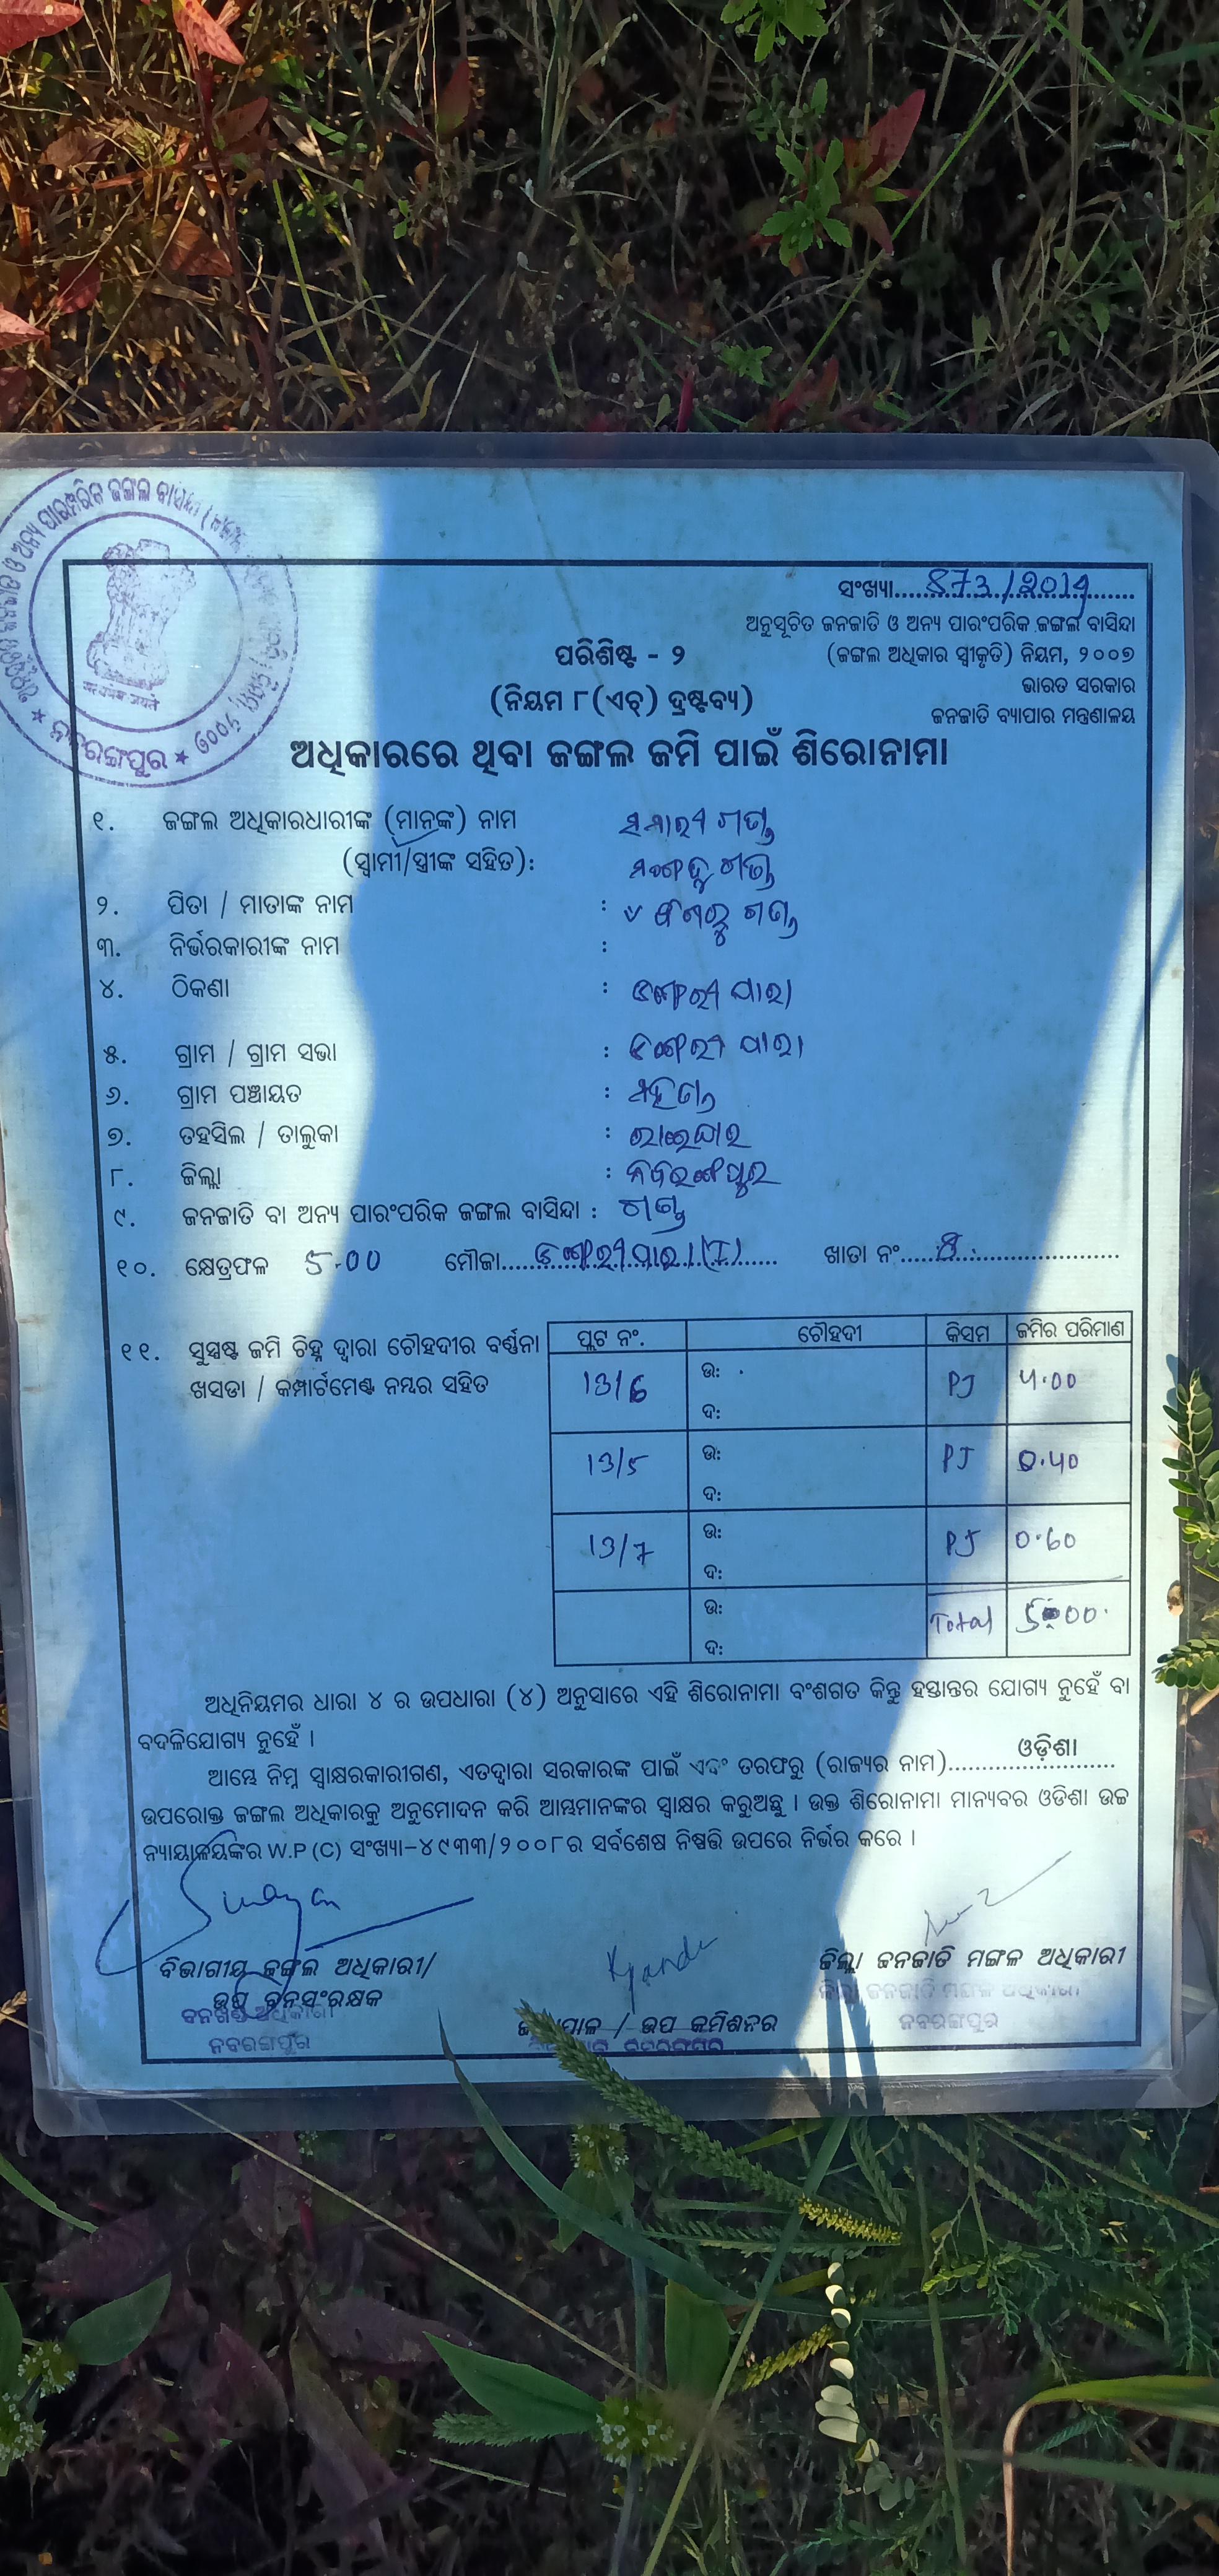 ସଂଖ୍ୟା....873/2014....
ଅନୁସୂଚିତ ଜନଜାତି ଓ ଅନ୍ୟ ପାରଂପରିକ ଜଙ୍ଗଲ ବାସିନ୍ଦା
(ଜଙ୍ଗଲ ଅଧିକାର ସ୍ୱୀକୃତି) ନିୟମ, ୨୦୦୭
ଭାରତ ସରକାର
ଜନଜାତି ବ୍ୟାପାର ମନ୍ତ୍ରଣାଳୟ
ପରିଶିଷ୍ଟ - ୨
(ନିୟମ ୮(ଏଚ୍) ଦ୍ରଷ୍ଟବ୍ୟ)
ଅଧିକାରରେ ଥିବା ଜଙ୍ଗଲ ଜମି ପାଇଁ ଶିରୋନାମା
୧. ଜଙ୍ଗଲ ଅଧିକାରଧାରୀଙ୍କ (ମାନଙ୍କ) ନାମ ଗଣ୍ଡ
(ସ୍ୱାମୀ/ସ୍ତ୍ରୀଙ୍କ ସହିତ): ଗଣ୍ଡ
୨. ପିତା / ମାତାଙ୍କ ନାମ : ଗଣ୍ଡ
୩. ନିର୍ଭରକାରୀଙ୍କ ନାମ :
୪. ଠିକଣା : ପାରା
୫. ଗ୍ରାମ / ଗ୍ରାମ ସଭା : ପାରା
୬. ଗ୍ରାମ ପଞ୍ଚାୟତ :
୭. ତହସିଲ / ତାଲୁକା : ରାଇଘର
୮. ଜିଲ୍ଲା : ନବରଙ୍ଗପୁର
୯. ଜନଜାତି ବା ଅନ୍ୟ ପାରଂପରିକ ଜଙ୍ଗଲ ବାସିନ୍ଦା : ଗଣ୍ଡ
୧୦. କ୍ଷେତ୍ରଫଳ 5.00 ମୌଜା.... ଖାତା ନଂ....
୧୧. ସୁସ୍ପଷ୍ଟ ଜମି ଚିହ୍ନ ଦ୍ୱାରା ଚୌହଦୀର ବର୍ଣ୍ଣନା
ଖସଡା / କମ୍ପାର୍ଟମେଣ୍ଟ ନମ୍ବର ସହିତ
ପ୍ଲଟ ନଂ. ଚୌହଦୀ କିସମ ଜମିର ପରିମାଣ
13/6 ଉ: ଦ: PJ 4.00
13/5 ଉ: ଦ: PJ 0.40
13/7 ଉ: ଦ: PJ 0.60
ଉ: ଦ: Total 5.00
ଅଧିନିୟମର ଧାରା ୪ ର ଉପଧାରା (୪) ଅନୁସାରେ ଏହି ଶିରୋନାମା ବଂଶଗତ କିନ୍ତୁ ହସ୍ତାନ୍ତର ଯୋଗ୍ୟ ନୁହେଁ ବା
ବଦଳିଯୋଗ୍ୟ ନୁହେଁ ।
ଆମ୍ଭେ ନିମ୍ନ ସ୍ୱାକ୍ଷରକାରୀଗଣ, ଏତଦ୍ୱାରା ସରକାରଙ୍କ ପାଇଁ ଏବଂ ତରଫରୁ (ରାଜ୍ୟର ନାମ)....ଓଡ଼ିଶା....
ଉପରୋକ୍ତ ଜଙ୍ଗଲ ଅଧିକାରକୁ ଅନୁମୋଦନ କରି ଆମ୍ଭମାନଙ୍କର ସ୍ୱାକ୍ଷର କରୁଅଛୁ । ଉକ୍ତ ଶିରୋନାମା ମାନ୍ୟବର ଓଡିଶା ଉଚ୍ଚ
ନ୍ୟାୟାଳୟଙ୍କର W.P (C) ସଂଖ୍ୟା-୪୯୩୩/୨୦୦୮ର ସର୍ବଶେଷ ନିଷ୍ପତ୍ତି ଉପରେ ନିର୍ଭର କରେ ।
ବିଭାଗୀୟ ଜଙ୍ଗଲ ଅଧିକାରୀ/
ଉପ ବନସଂରକ୍ଷକ
ବନଖଣ୍ଡ ଅଧିକାରୀ
ନବରଙ୍ଗପୁର
/ ଉପ କମିଶନର
ଜିଲ୍ଲା ଜନଜାତି ମଙ୍ଗଳ ଅଧିକାରୀ
ଜିଲ୍ଲା ଜନଜାତି ମଙ୍ଗଳ ଅଧିକାରୀ
ନବରଙ୍ଗପୁର